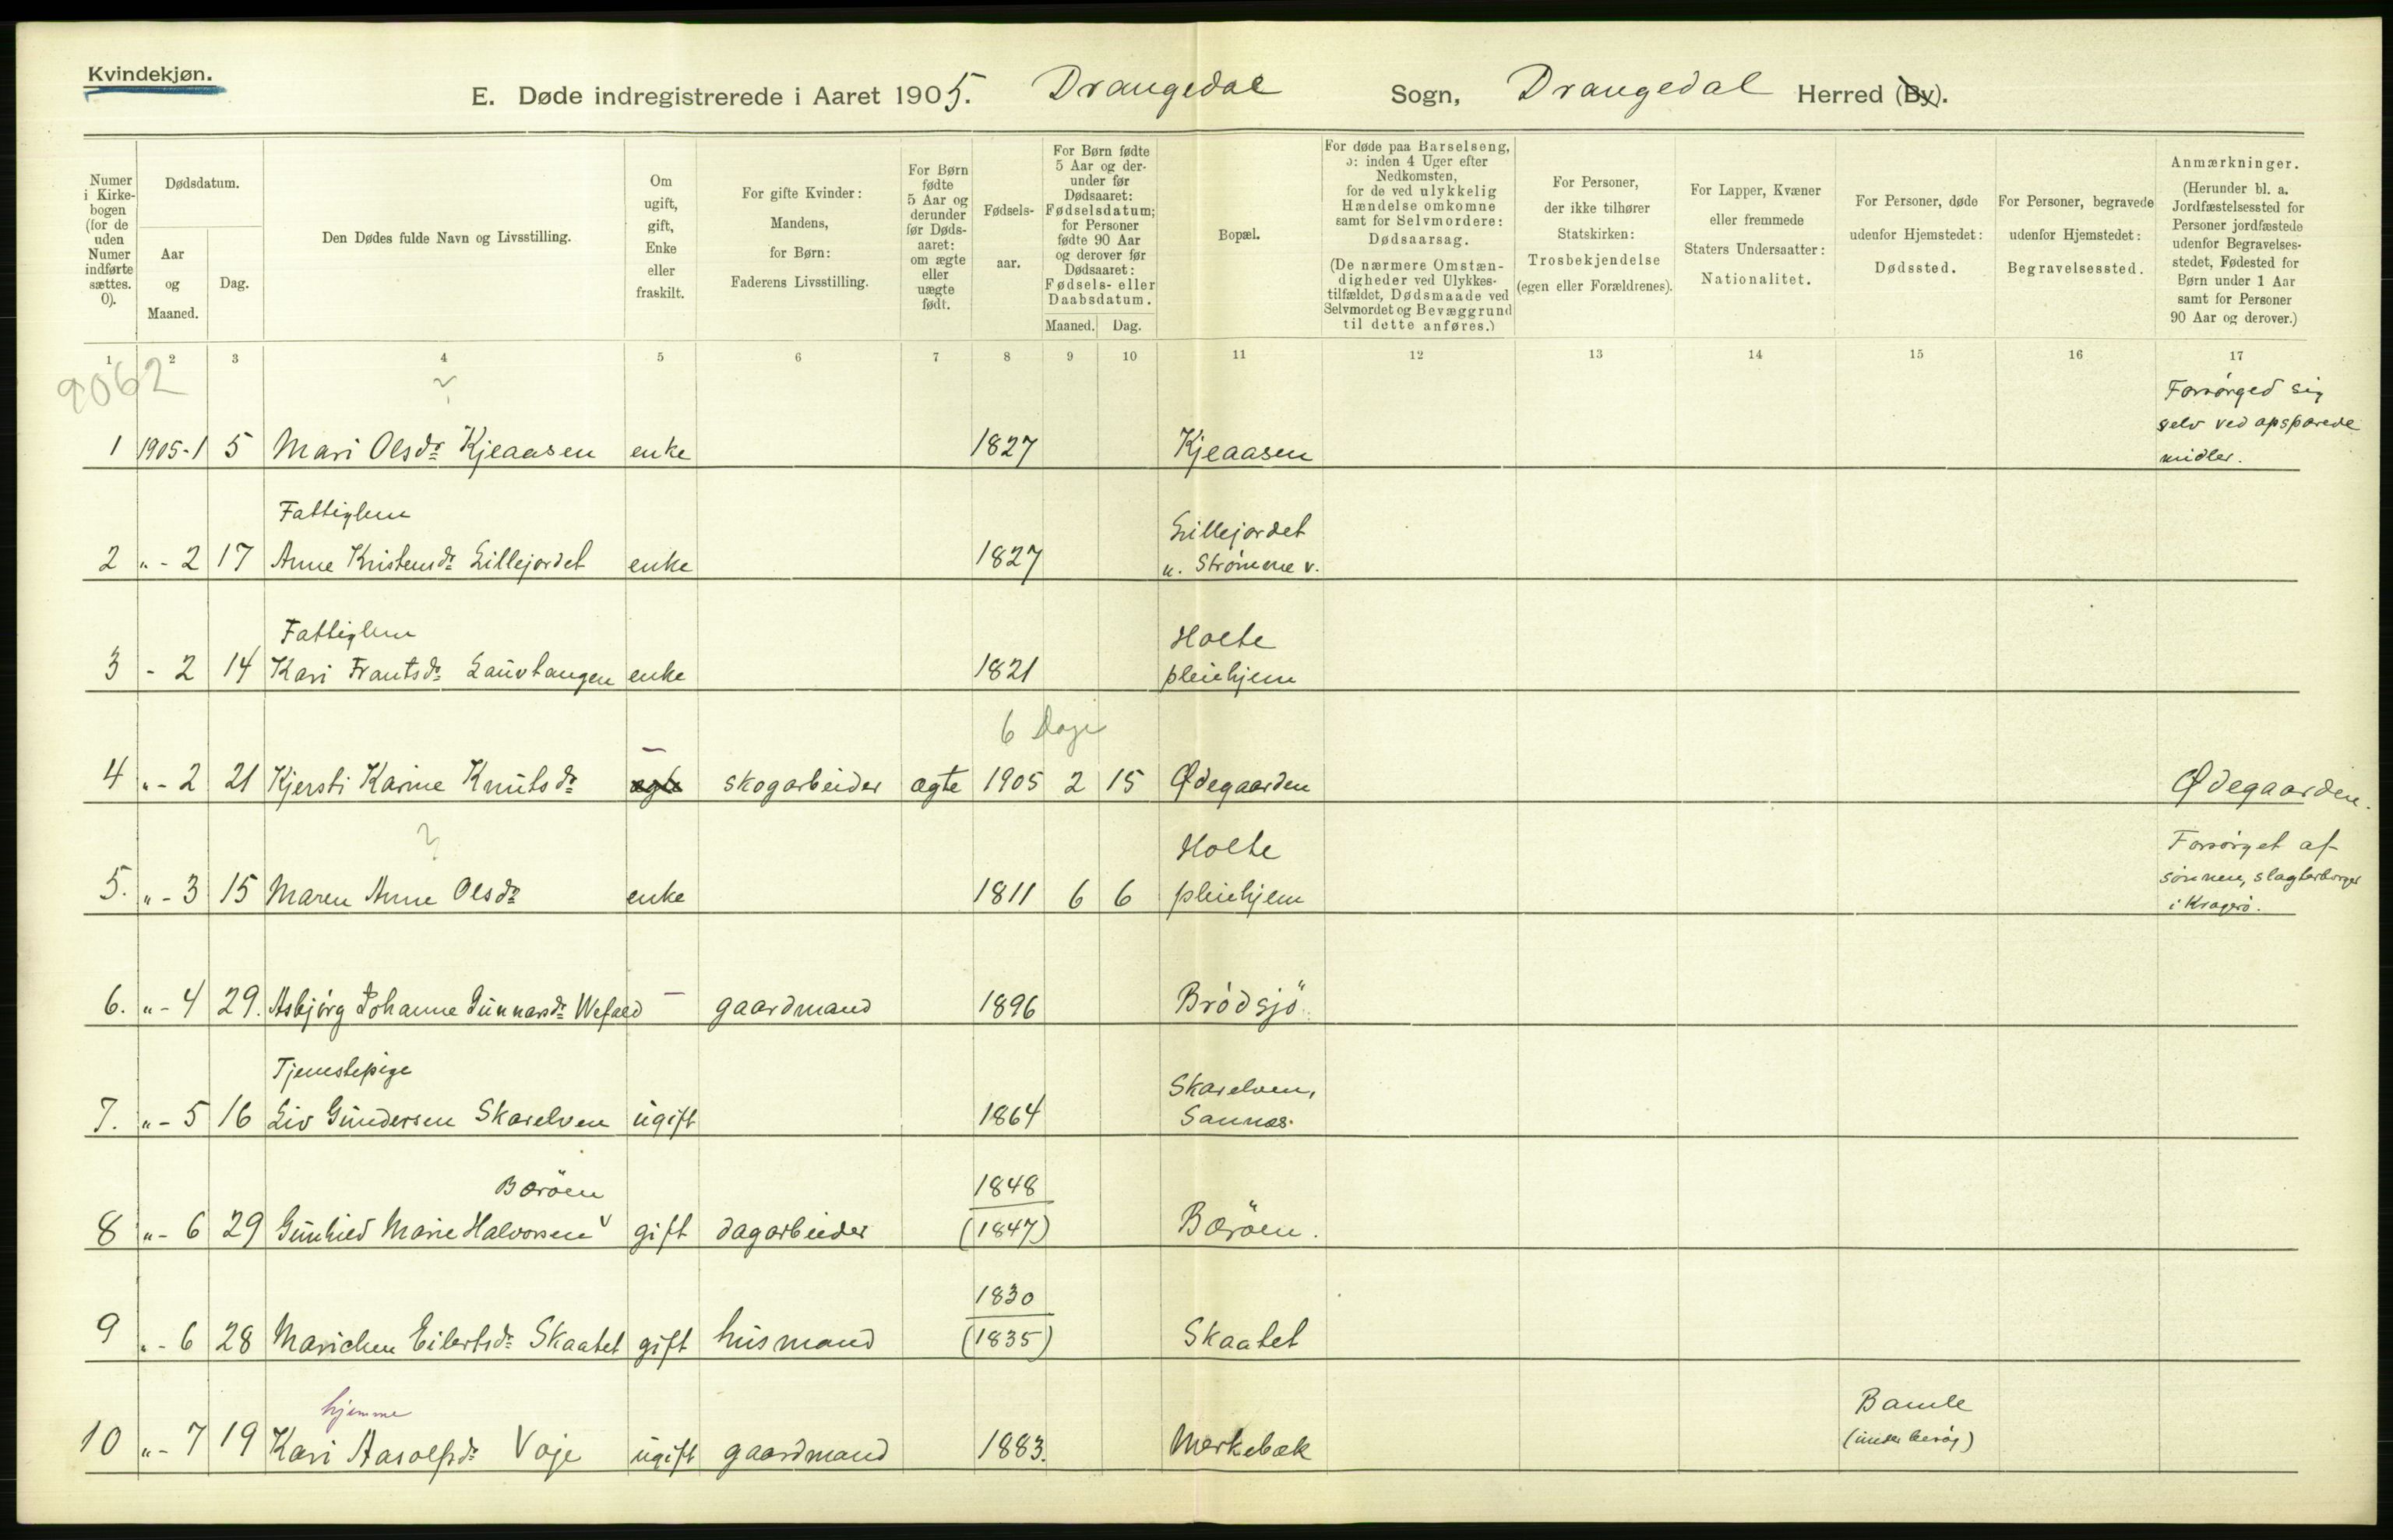 Kvindekjøn.
E. Døde indregistrerede i Aaret 1905. Drangedal Sogn, Drangedal Herred (By).
Numer i Kirke-bogen (for de uden Numer indførte sættes. 0).
Dødsdatum.
Aar og Maaned.
Dag.
Den Dødes fulde Navn og Livsstilling.
Om ugift, gift, Enke eller fraskilt.
For gifte Kvinder: Mandens, for Børn: Faderens Livsstilling.
For Børn fødte 5 Aar og derunder før Døds-aaret: om ægte eller uægte født.
Fødsels-aar.
For Børn fødte 5 Aar og der-under før Dødsaaret: Fødselsdatum; for Personer fødte 90 Aar og derover før Dødsaaret: Fødsels- eller Daabsdatum.
Maaned. Dag.
Bopæl.
For døde paa Barselseng, ɔ: inden 4 Uger efter Nedkomsten, for de ved ulykkelig Hændelse omkomne samt for Selvmordere: Dødsaarsag. (De nærmere Omstæn-digheder ved Ulykkes-tilfældet, Dødsmaade ved Selvmordet og Bevæggrund til dette anføres.)
For Personer, der ikke tilhører Statskirken: Trosbekjendelse (egen eller Forældrenes).
For Lapper, Kvæner eller fremmede Staters Undersaatter: Nationalitet.
For Personer, døde udenfor Hjemstedet: Dødssted.
For Personer, begravede udenfor Hjemstedet: Begravelsessted.
Anmærkninger. (Herunder bl. a. Jordfæstelsessted for Personer jordfæstede udenfor Begravelses-stedet, Fødested for Børn under 1 Aar samt for Personer 90 Aar og derover.)
1 2 3 4 5 6 7 8 9 10 11 12 13 14 15 16 17
9062
Forsørged sig
selv ved opsparede
1 1905-1 5 Mari Olsdr Kjeaasen enke 1827 Kjeaasen midler.
Fattiglem Lillejordet
2 " - 2 17 Anne Kristensdr Lillejordet enke 1827 u. Strømme v.
Fattiglem Holte
3 - 2 14 Kari Frantsdr Lauvtangen enke 1821 pleiehjem
6 Dage
4 " - 2 21 Kjersti Karine Knutsdr ægte skogarbeider ægte 1905 2 15 Ødegaarden Ødegaarden.
Holte Forsørget af
sønnen, slagterborger
5. " - 3 15 Maren Anne Olsdr enke 1811 6 6 pleiehjem i Kragerø.
6. " - 4 29. Asbjörg Johanne Gunnarsdr Wefald - gaardmand 1896 Brödsjö
Tjenestepige Skarelven,
7. " - 5 16 Liv Gundersen Skarelven ugift 1864 Sannes.
Boröen 1848
8 " - 6 29 Gunhild Marie Halvorsen v gift dagarbeider (1847) Boröen.
1830
9 " - 6 28 Marichen Eilertsdr Skaatet gift husmand (1835) Skaatet
hjemme Bamle
10 " - 7 19 Kari Aasolfsdr Voje ugift gaardmand 1883. Merkebæk (under besøg)